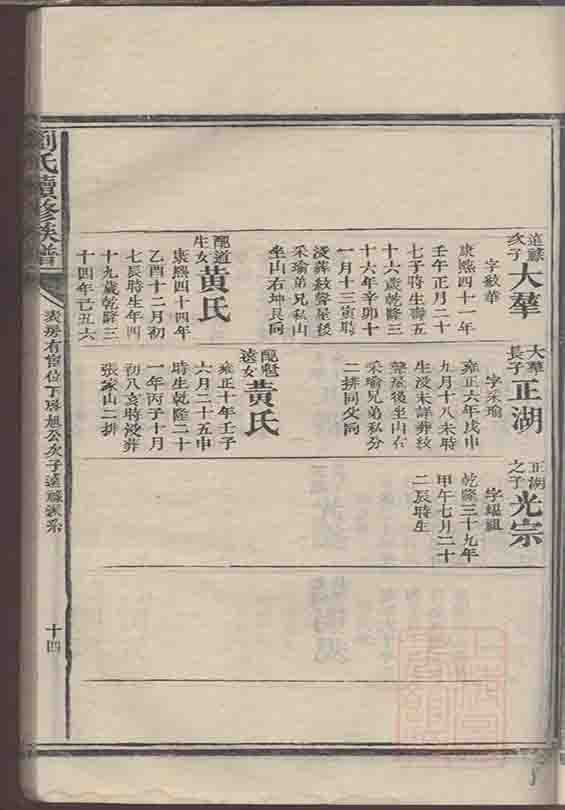 遠祿
次子
大華
字敏華
康熙四十一年
壬午正月二十
七子時生壽五
十六歲乾隆三
十六年辛卯十
一月十三寅時
没葬紋聲屋後
采瑜弟兄私山
坐山右坤艮同
配道
生女
黄氏
康熙四十四年
乙酉十二月初
七辰時生年四
十九歲乾隆三
十四年己丑六
大華
長子
正湖
字采瑜
雍正六年戊申
九月十八未時
生没未詳葬紋
聲屋後坐山右
采瑜兄弟私分
二排同父同
配魁
遠女
黄氏
雍正十年壬子
六月二十五申
時生乾隆二十
一年丙子十月
初八亥時没葬
張家山二排
正湖
之子
光宗
字耀祖
乾隆三十九年
甲午七月二十
二辰時生
劉氏續修族譜
公次子遠祿派系
十四